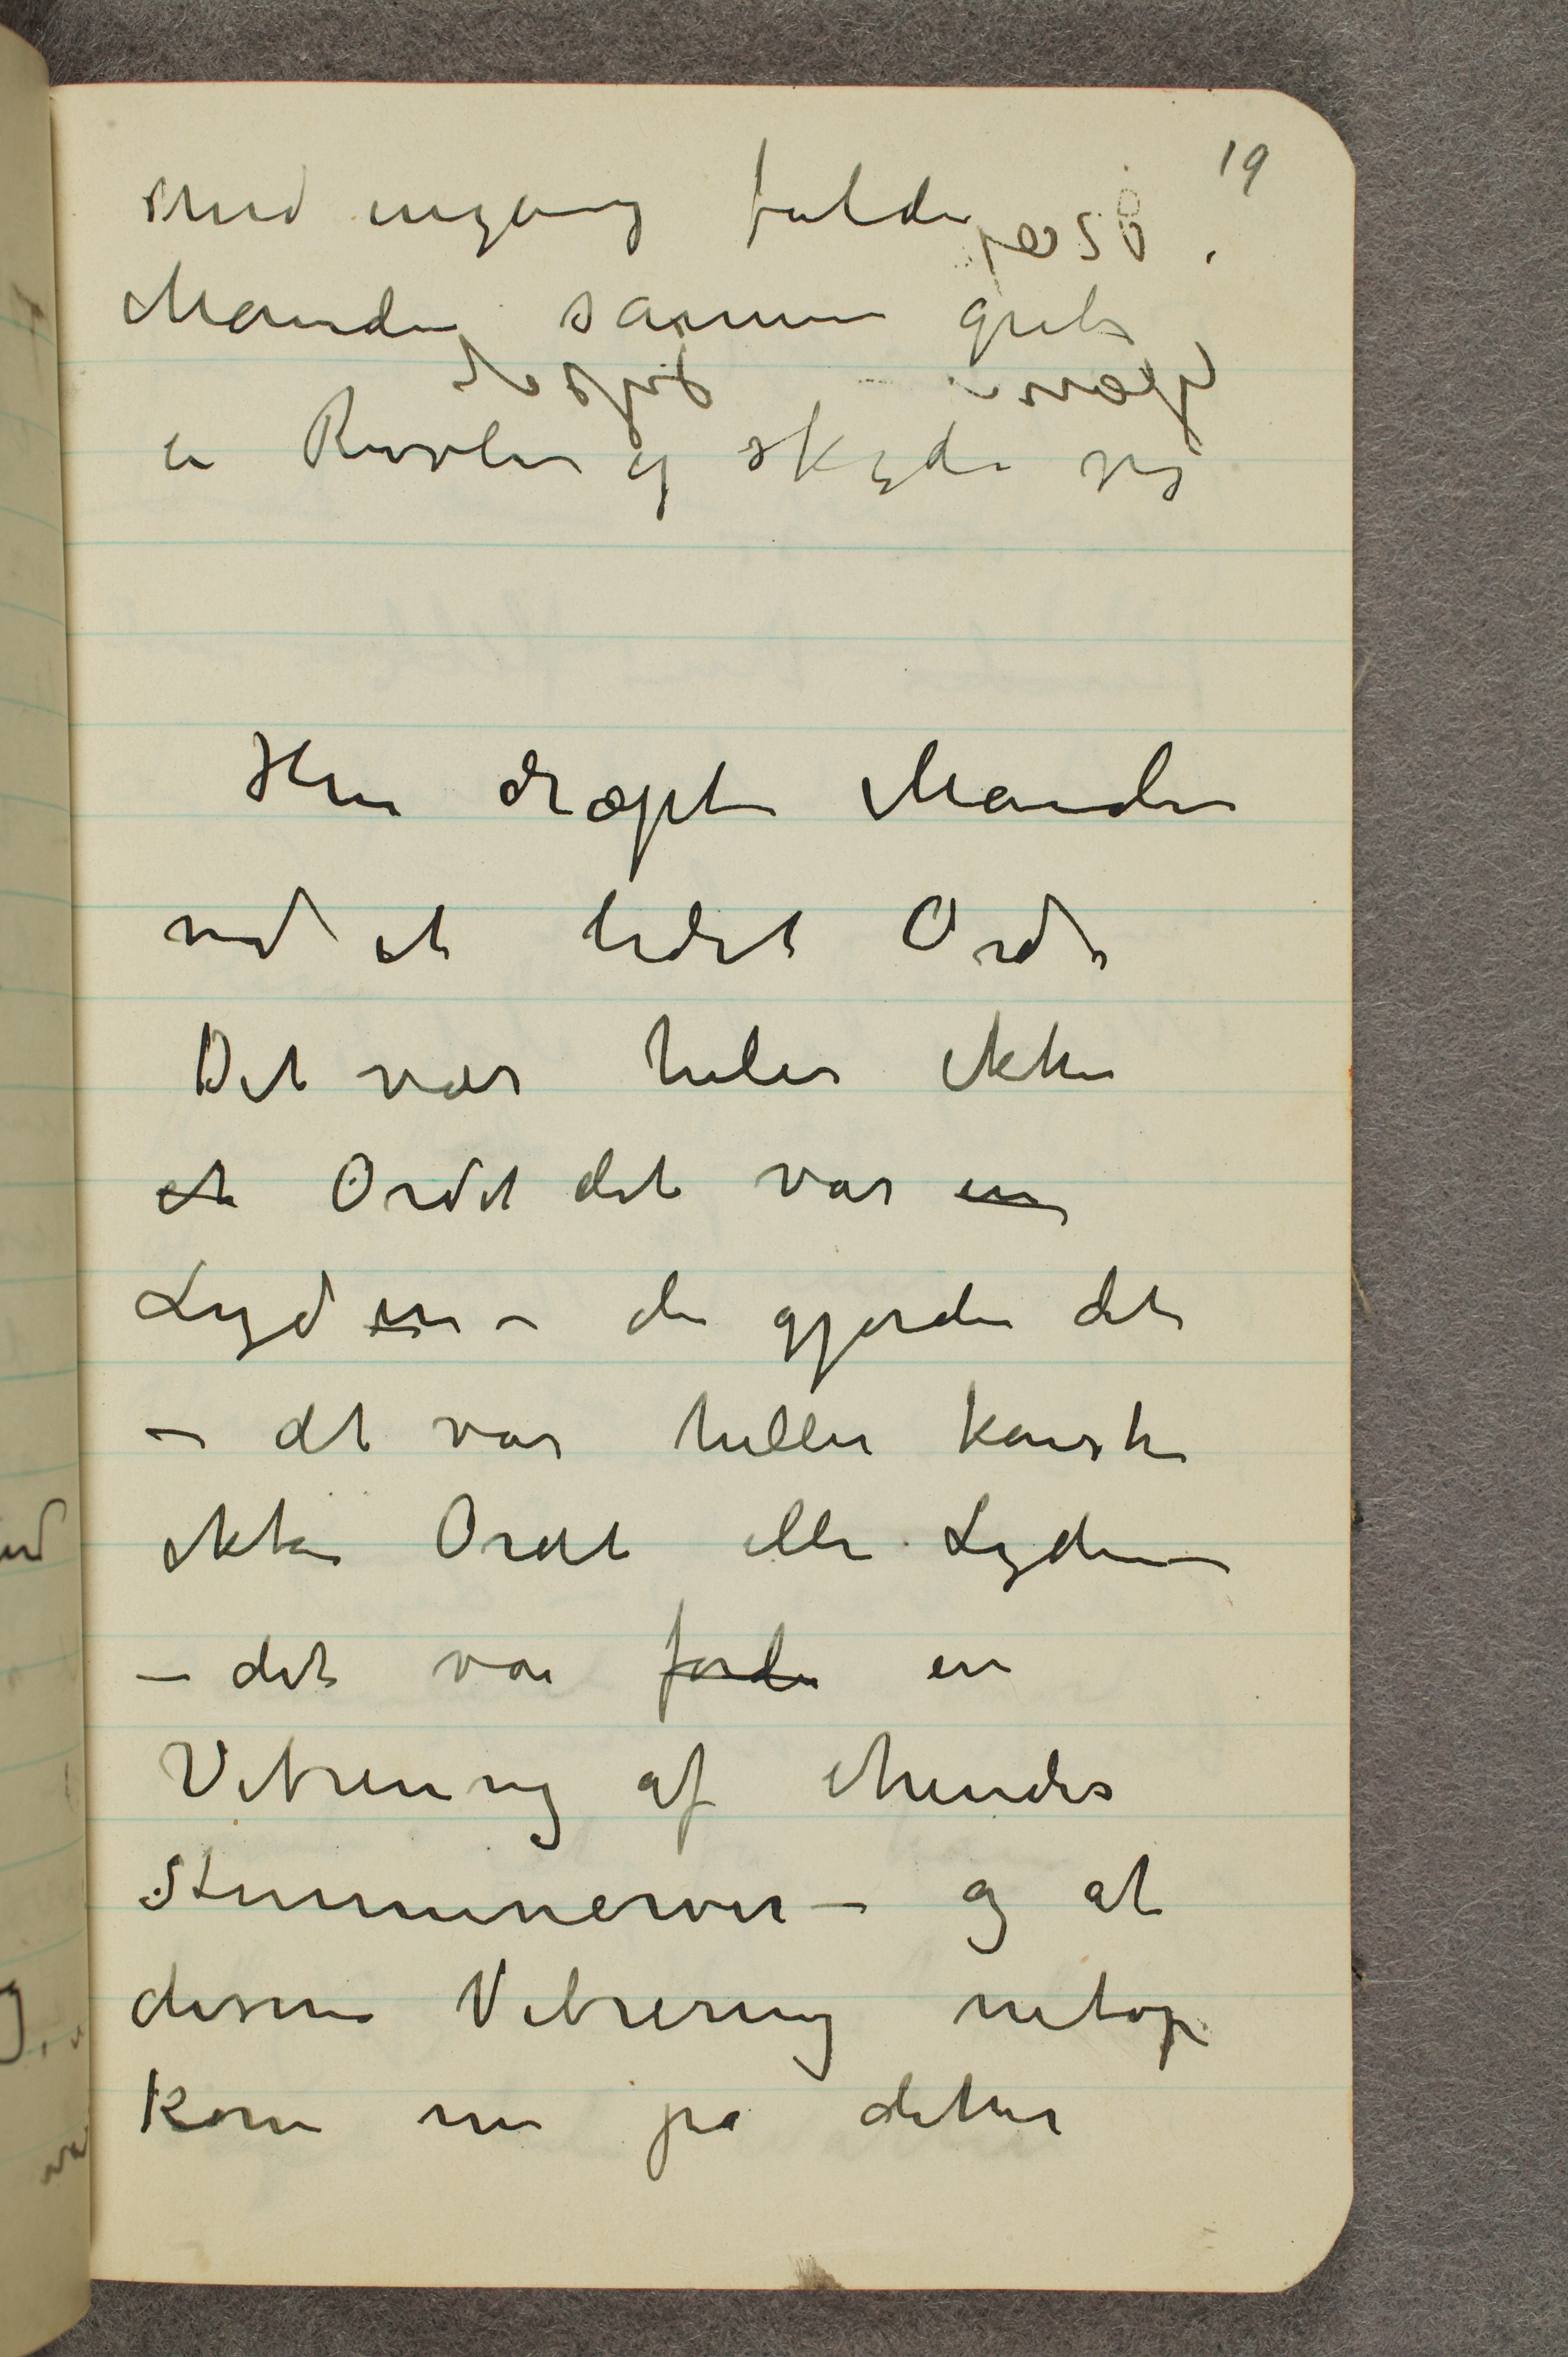 19
med engang faldt
Manden sammen greb
en Revolver og skyder sig
Hun dræpte Manden
ved et lidet Ord
Det var heller ikke
et Ordet det var en
Lyden – der gjorde det
– det var heller kanske
ikke Ordet eller Lyden –
– det var fordi en
Vibrering af hendes
Stemmenerver – og at
disse Vibrering netop
kom nu på dette